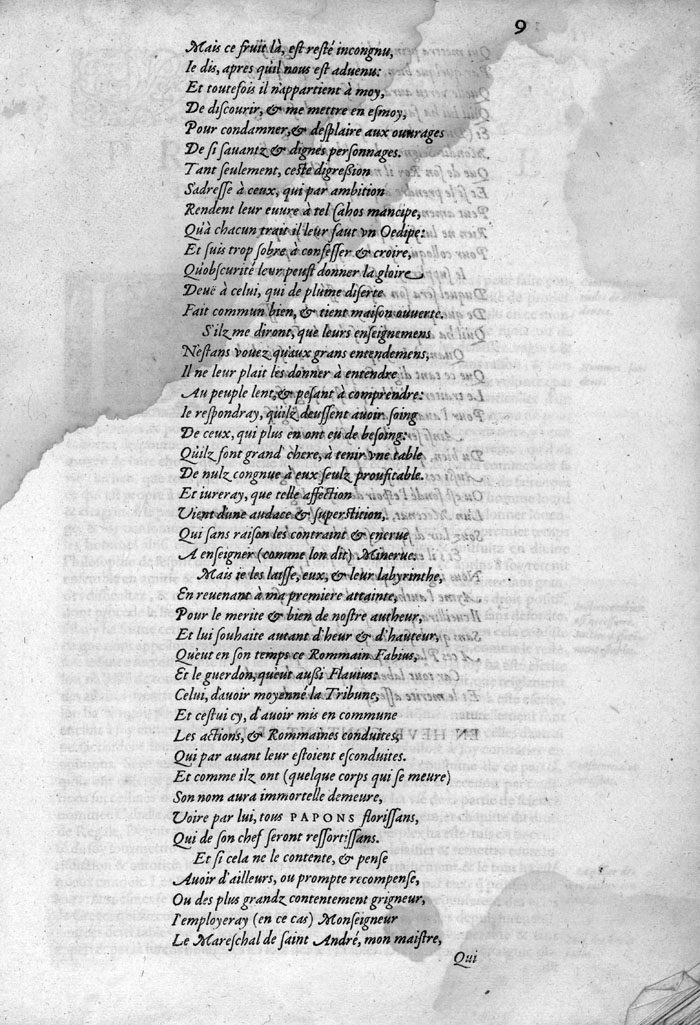 9
Mais ce fruit là, est resté incongnu,
Ie dis, apres qu'il nous est aduenu:
Et toutefois il n'appartient à moy,
De discourir, & me mettre en esmoy,
Pour condamner, & desplaire aux ouurages
De si sauantz & dignes personnages.
Tant seulement, ceste digression
S'adresse à ceux, qui par ambition
Rendent leur euure à tel Cahos mancipe,
Qu'à chacun trait il leur faut vn Oedipe:
Et suis trop sobre à confesser & croire,
Qu'obscurité leur peust donner la gloire
Deuë à celui, qui de plume diserte
Fait commun bien, & tient maison ouuerte.
S'ilz me diront, que leurs enseignemens
N'estans vouez qu'aux grans entendemens,
Il ne leur plait les donner à entendre
Au peuple lent, & pesant à comprendre:
Ie respondray, qu'ilz deussent auoir soing
De ceux, qui plus en ont eu de besoing:
Qu'ilz font grand' chere, à tenir vne table
De nulz congnue à eux seulz proufitable.
Et iureray, que telle affection
Vient d'une audace & superstition,
Qui sans raison les contraint & encrue
A enseigner (comme lon dit) Minerue.
Mais ie les laisse, eux, & leur labyrinthe,
En reuenant à ma premiere attainte,
Pour le merite & bien de nostre autheur,
Et lui souhaite autant d'heur & d'hauteur,
Qu'eut en son temps ce Rommain Fabius,
Et le guerdon, qu'eut aussi Flauius:
Celui, d'auoir moyenné la Tribune,
Et cestui cy, d'auoir mis en commune
Les actions, & Rommaines conduites,
Qui par auant leur estoient esconduites.
Et comme ilz ont (quelque corps qui se meure)
Son nom aura immortelle demeure,
Voire par lui, tous PAPONS florissans,
Qui de son chef seront ressortissans.
Et si cela ne le contente, & pense
Auoir d'ailleurs, ou prompte recompense,
Ou des plus grandz contentement grigneur,
I'employeray (en ce cas) Monseigneur
Le Mareschal de saint André, mon maistre,
Qui